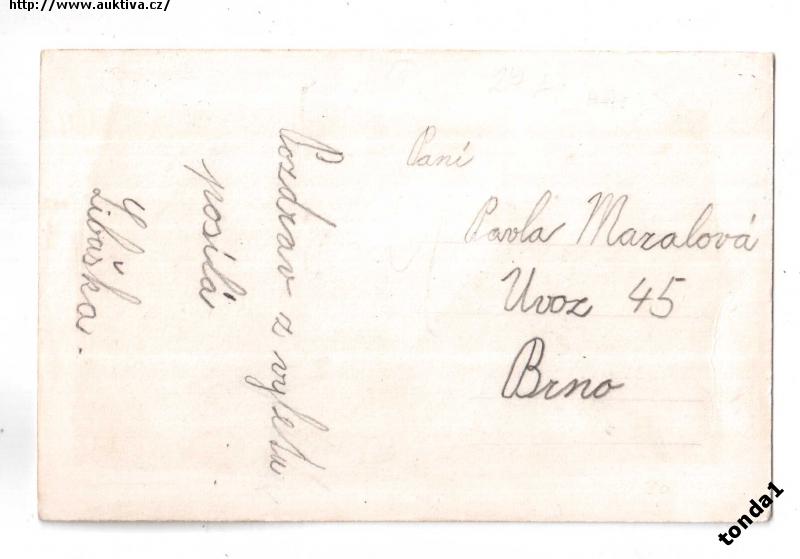 http://www.auktiva.cz/
Pozdrav z výletu
posílá
Libuška.
Paní
Pavla Mazalová
Úvoz 45
Brno
tonda1